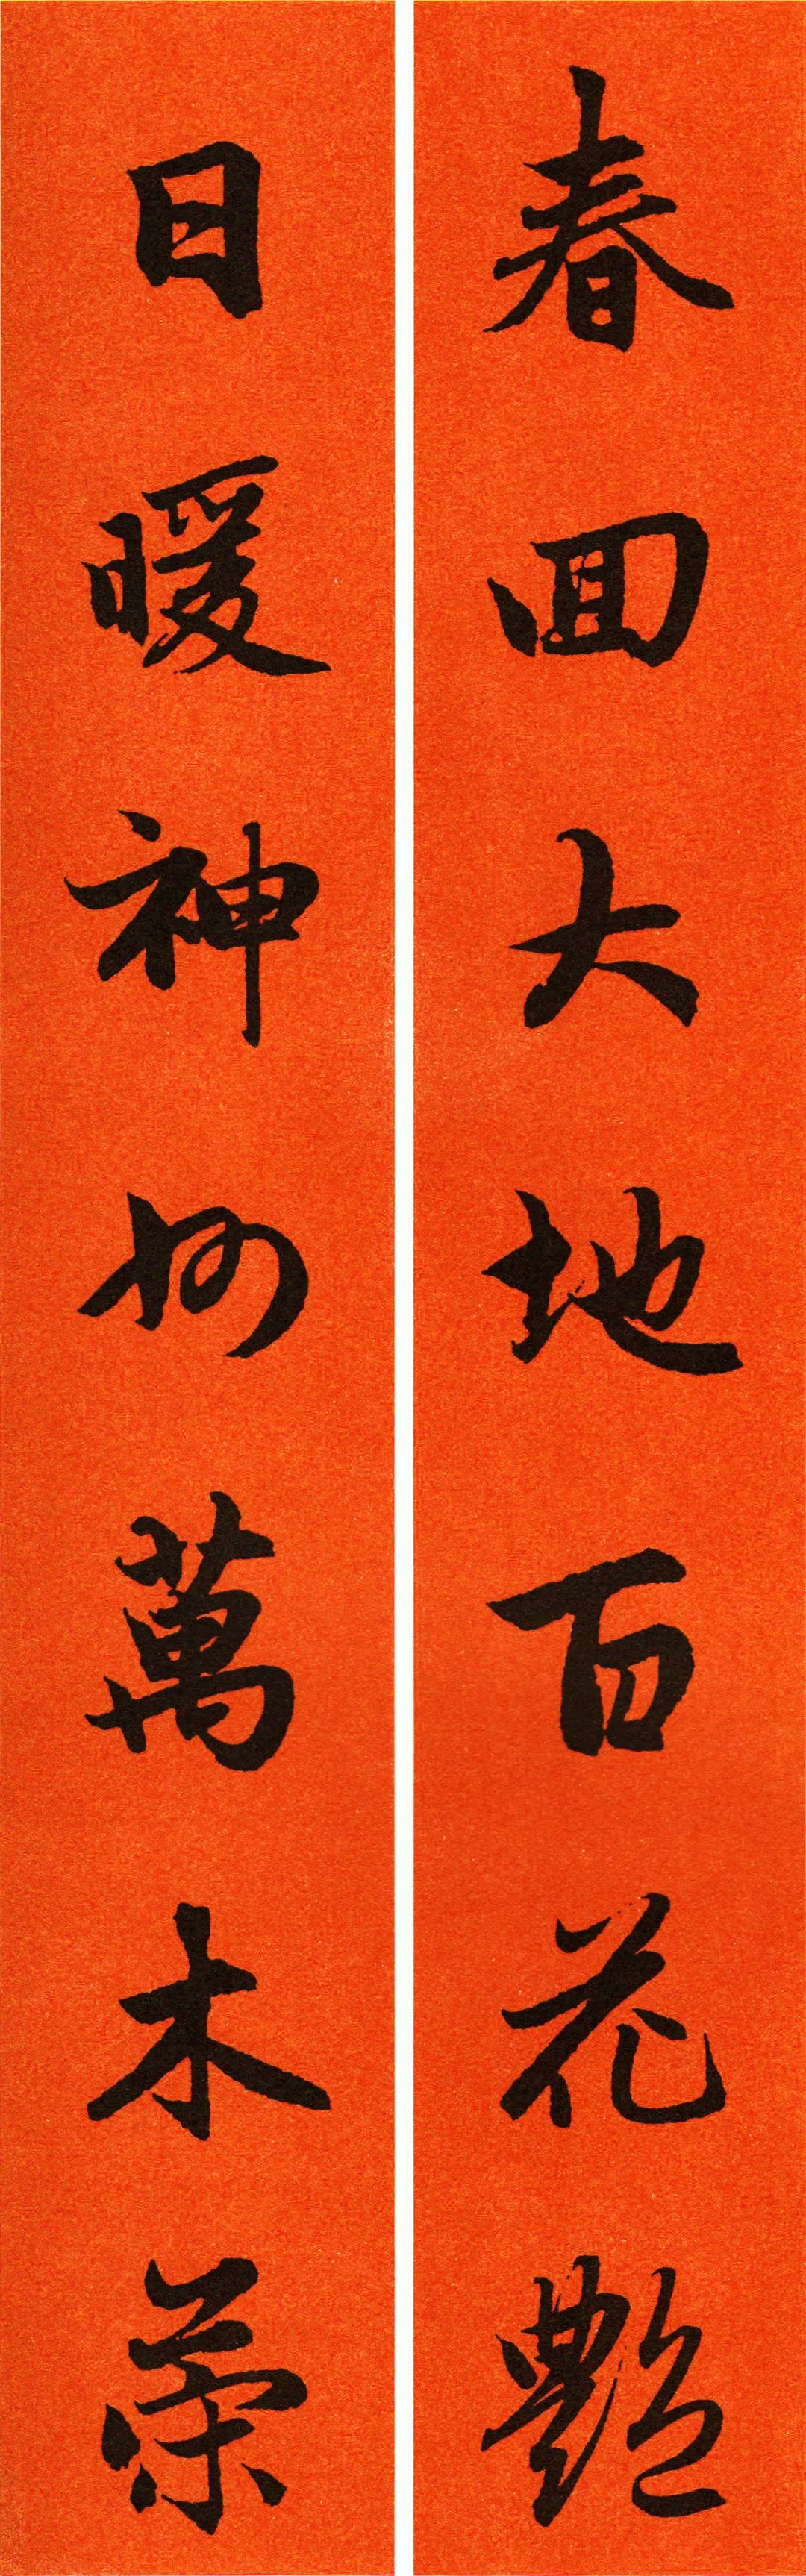 春回大地百花艷
日暖神州萬木荣